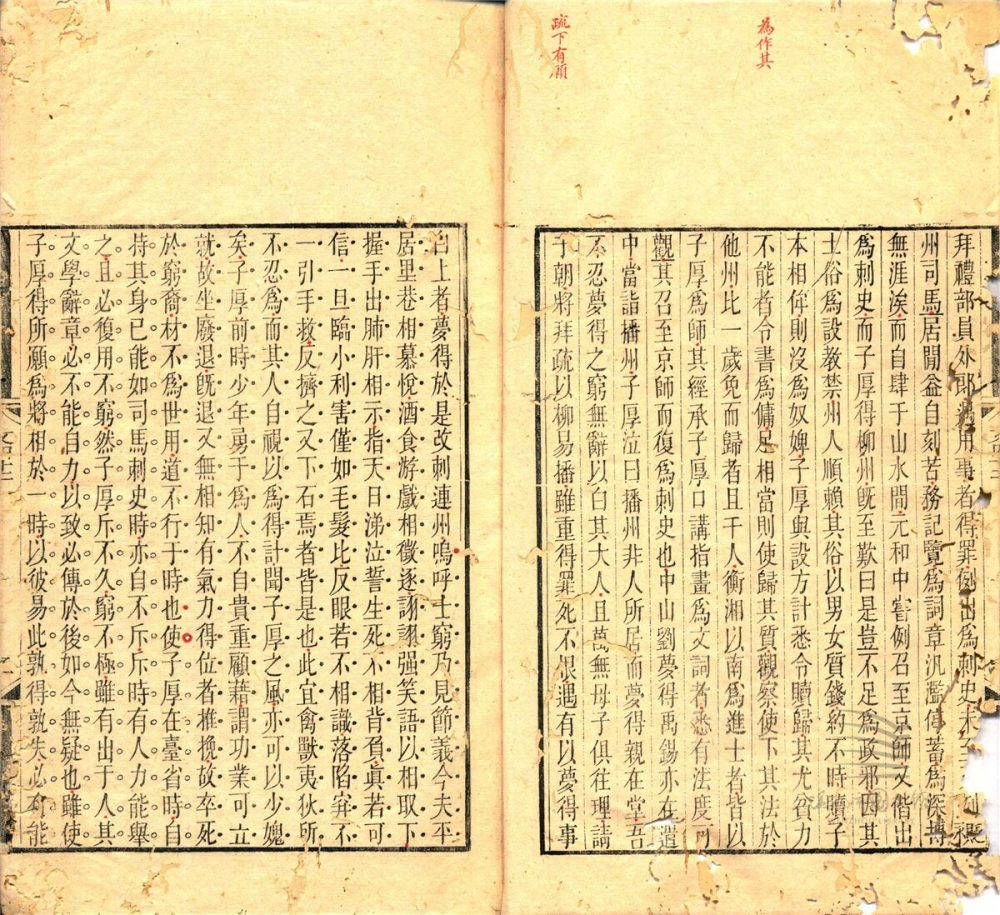 為作其
疏下有願
拜禮部員外郎遇用事者得罪例出爲刺史未至例貶
州司馬居閒益自刻苦務記覽爲詞章汎濫停蓄爲深博
無涯涘而自肆于山水間元和中嘗例召至京師又偕出
爲刺史而子厚得柳州旣至歎曰是豈不足爲政邪因其
土俗爲設教禁州人順賴其俗以男女質錢約不時贖子
本相侔則沒爲奴婢子厚與設方計悉令贖歸其尤貧力
不能者令書爲傭足相當則使歸其質觀察使下其法於
他州比一歲免而歸者且千人衡湘以南爲進士者皆以
子厚爲師其經承子厚口講指畫爲文詞者悉有法度可
觀其召至京師而復爲刺史也中山劉夢得禹錫亦在遣
中當詣播州子厚泣曰播州非人所居而夢得親在堂吾
不忍夢得之窮無辭以白其大人且萬無母子俱往理請
于朝將拜疏以柳易播雖重得罪死不恨遇有以夢得事
白上者夢得於是改刺連州嗚呼士窮乃見節義今夫平
居里巷相慕悅酒食游戲相徵逐詡詡强笑語以相取下
握手出肺肝相示指天日涕泣誓生死不相背負真若可
信一旦臨小利害僅如毛髮比反眼若不相識落陷穽不
一引手救反擠之又下石焉者皆是也此宜禽獸夷狄所
不忍爲而其人自視以爲得計聞子厚之風亦可以少媿
矣子厚前時少年勇于爲人不自貴重顧藉謂功業可立
就故坐廢退旣退又無相知有氣力得位者推挽故卒死
於窮裔材不爲世用道不行于時也使子厚在臺省時自
持其身已能如司馬刺史時亦自不斥斥時有人力能舉
之且必復用不窮然子厚斥不久窮不極雖有出于人其
文學辭章必不能自力以致必傳於後如今無疑也雖使
子厚得所願爲將相於一時以彼易此孰得孰失必有能